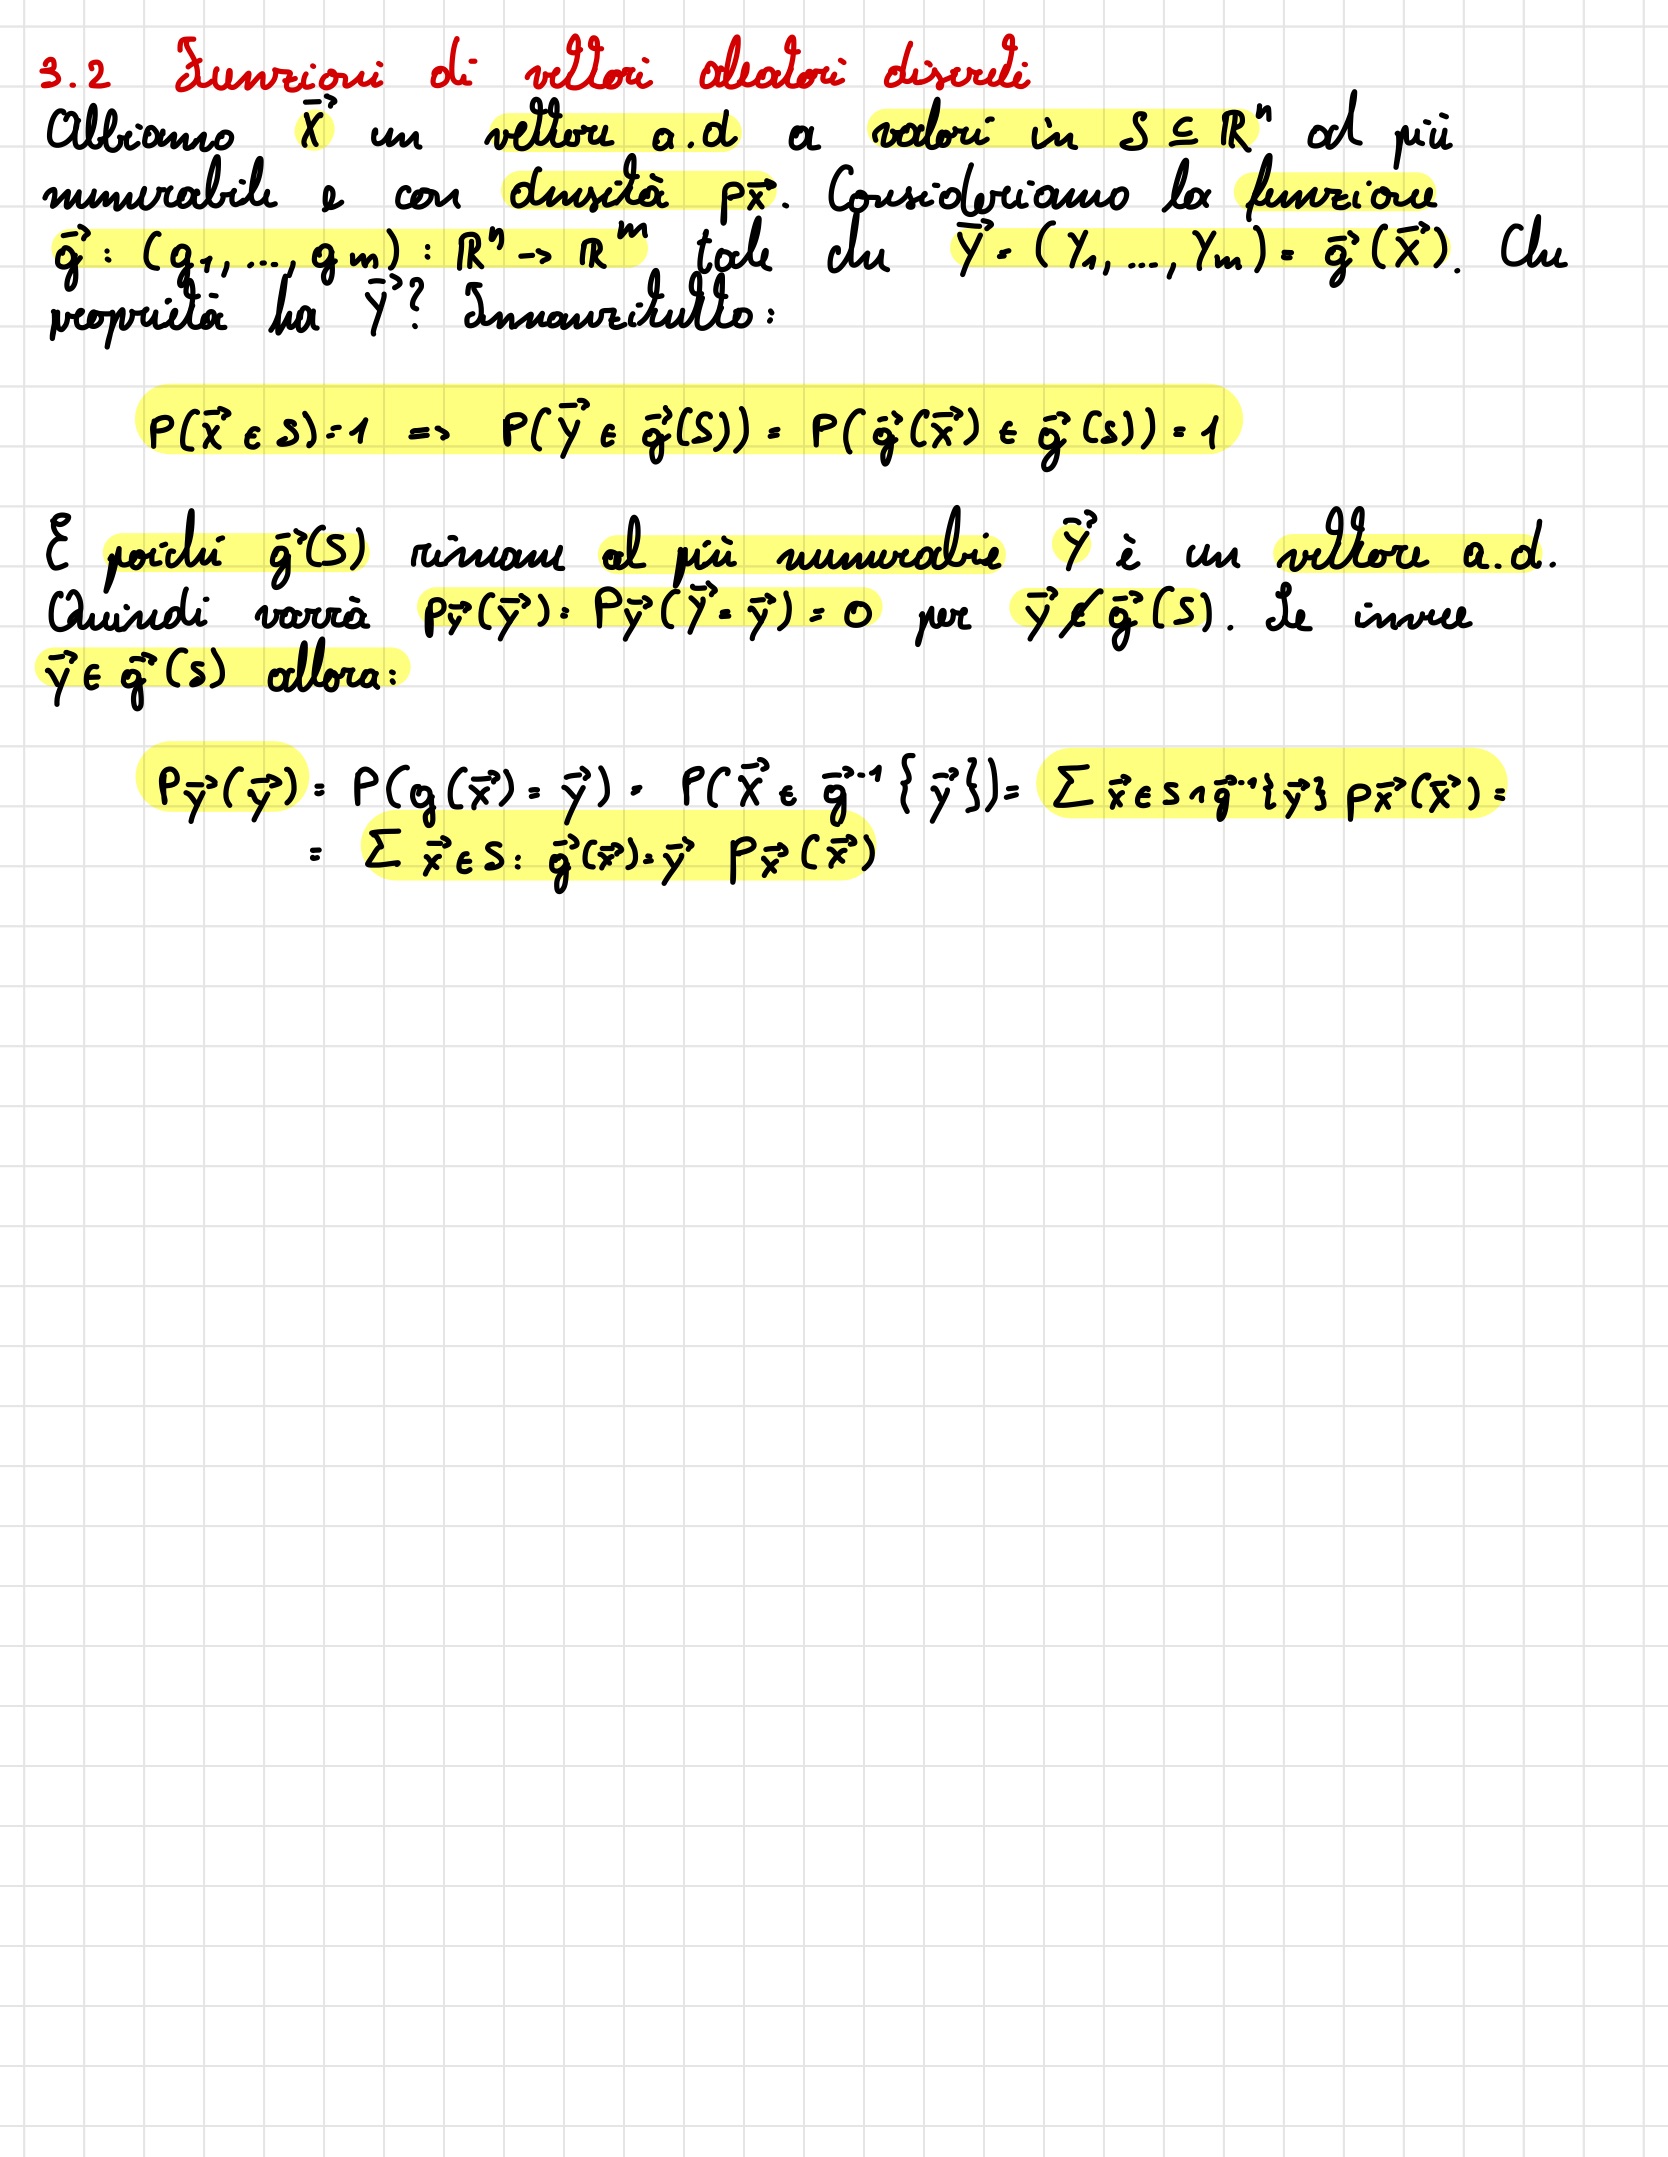 3.2 Funzioni di vettori aleatori discreti
Abbiamo X⃗ un vettore a.d a valori in S ⊆ ℝⁿ al più
numerabile e con densità pX⃗. Consideriamo la funzione
g⃗ : (g₁, ..., gm) : ℝⁿ -> ℝᵐ tale che Y⃗ = (Y₁, ..., Ym) = g⃗(X⃗). Che
proprietà ha Y⃗? Innanzitutto:
P(X⃗ ∈ S) = 1 => P(Y⃗ ∈ g⃗(S)) = P(g⃗(X⃗) ∈ g⃗(S)) = 1
E poiché g⃗(S) rimane al più numerabie Y⃗ è un vettore a.d.
Quindi varrà pY⃗(y⃗) = PY⃗(Y⃗ = y⃗) = 0 per y⃗ ∉ g⃗(S). Se invece
y⃗ ∈ g⃗(S) allora:
PY⃗(y⃗) = P(g(X⃗) = y⃗) = P(X⃗ ∈ g⃗⁻¹{y⃗}) = ∑ x⃗ ∈ S ∩ g⃗⁻¹{y⃗} pX⃗(x⃗) =
= ∑ x⃗ ∈ S : g⃗(x⃗) = y⃗ pX⃗(x⃗)